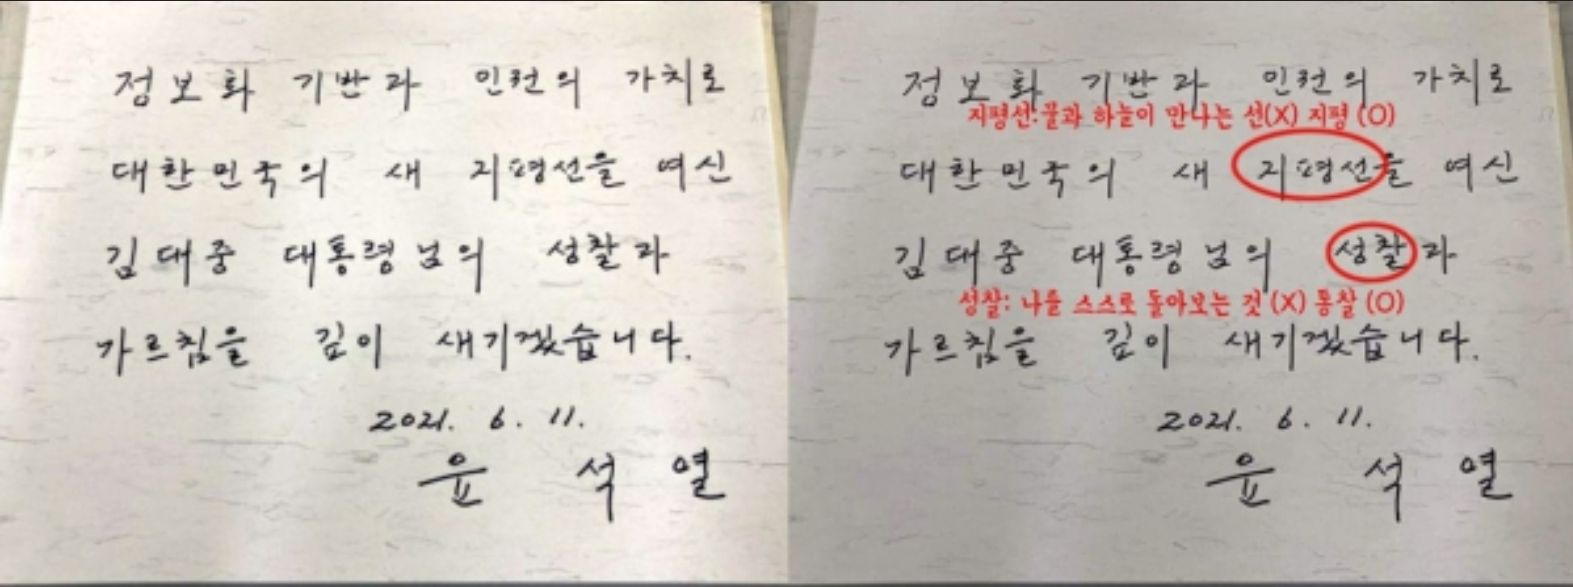 정보화 기반과 인권의 가치로
대한민국의 새 지평선을 여신
김대중 대통령님의 성찰과
가르침을 깊이 새기겠습니다.
2021. 6. 11.
윤 석 열
정보화 기반과 인권의 가치로
지평선:물과 하늘이 만나는 선(X) 지평 (O)
대한민국의 새 지평선을 여신
김대중 대통령님의 성찰과
성찰: 나를 스스로 돌아보는 것 (X) 통찰 (O)
가르침을 깊이 새기겠습니다.
2021. 6. 11.
윤 석 열